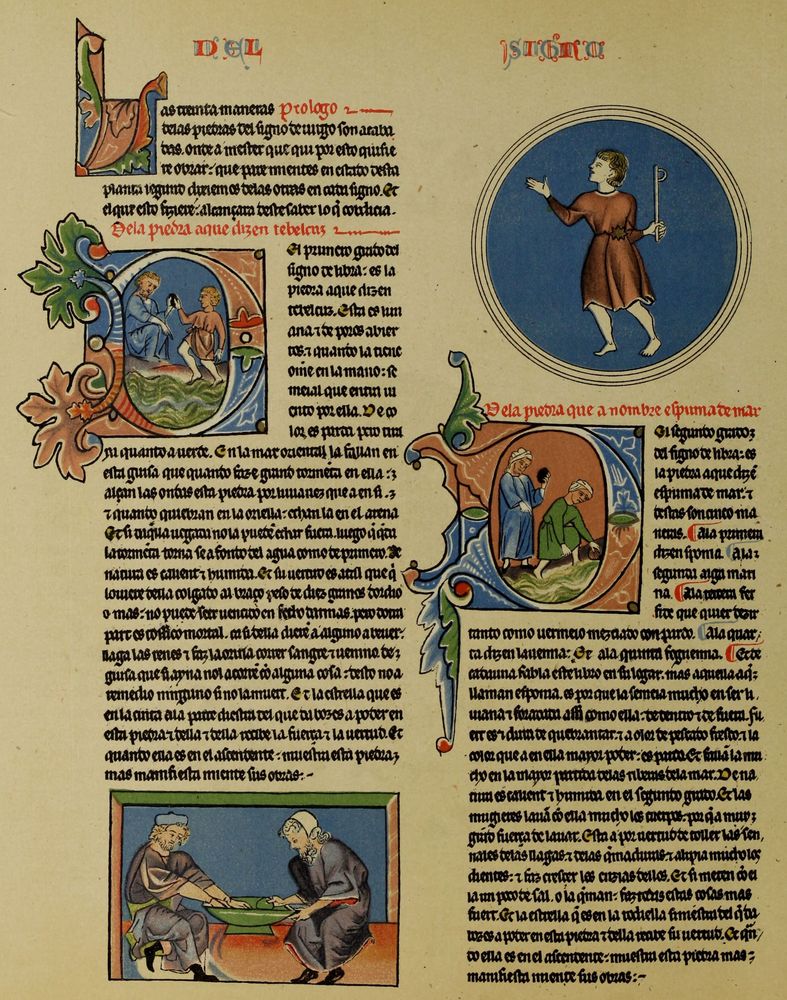 DEL SIGNO
Las treinta maneras Prologo
delas piedras del signo de uirgo son acaba
das. onde a mester que qui por esto quisie
re obrar: que pare mientes en estado desta
planta segund dixiemos delas otras en cada signo. Et
el que esto fiziere: alcançara deste saber lo q̃ cobdicia.
Dela piedra aque dizen tebelcuz
El primero grado del
signo de libra: es la
piedra aque dizen
tebelcuz. Esta es liui
ana ⁊ de poros abier
tos: ⁊ quanto la tiene
omẽ en la mano: se
meial que entra ui
ento por ella. De co
lor es parda. pero tira
ya quanto a uerde. En la mar oriental la fallan en
esta guisa que quando faze grand tormẽta en ella: ⁊
alçan las ondas esta piedra por liuianez que a en si. ⁊
⁊ quanto quiebran en la oriella: echan la en el arena
Et si alguna uegada no la puedẽ echar fuera. luego q̃ q̃da
la tormẽta torna se a fondo del agua como de primero. De
natura es calient ⁊ humida. Et su uertud es atal que q̃
louiere della colgado al braço peso de diez granos dordio
o mas: no puede seer uençudo en fecho darmas. pero dotra
part es tossico mortal. ca si della dierẽ a alguno a beuer:
llaga las renes ⁊ faz la orina correr sangre ⁊ uenino. de
guisa que si ayna nol acorrẽ cõ alguna cosa: desto no a
remedio ninguno si no la muert. Et la estrella que es
en la cinta en la parte diestra del que da bozes a poder en
esta piedra ⁊ della ⁊ della recibe la fuerça ⁊ la uertud. Et
quando ella es en el ascendente: muestra esta piedra
mas manifiesta miente sus obras:-
Dela piedra que a nombre espuma de mar
El segundo grado
del signo de libra: es
la piedra aque dizẽ
espuma de mar. ⁊
destas son cinco ma
neras. Ala primera
dizen spoma. Ala
segunda alga mari
na. Ala tercera fer
fire que quier dezir
tanto como uermeio mezclado con pardo. Ala quar
ta dizen lauenna: Et ala quinta foguenna. Et de
cadauna fabla este libro en su logar. mas aquella aq̃
llaman espoma. es por que la semeia mucho en ser li
uiana ⁊ foradada assi como ella: de dentro ⁊ de fuera. Fu
ert es ⁊ dura de quebrantar: ⁊ a olor de pescado fresco: ⁊ la
color que a en ella mayor poder: es parda. Et fallã la mu
cho en la mayor partida delas riberas dela mar. De na
tura es calient ⁊ humida. en el segundo grado. Et las
mugieres lauã cõ ella mucho los cuerpos: por q̃ a muy
grãd fuerça de lauar. Esta a por uertud de toller las sen
nales delas llagas ⁊ delas q̃maduras ⁊ alimpia mucho los
dientes: ⁊ faz crescer las enzias dellos. Et si meten cõ el
la un poco de sal. o la q̃man: faz todas estas cosas mas
fuert. Et la estrella q̃ es en la rodiella siniestra del q̃ da
bozes a poder en esta piedra ⁊ della recibe su uertud. Et q̃n
do ella es en el ascendente: muestra esta piedra mas
manifiesta miente sus obras:-